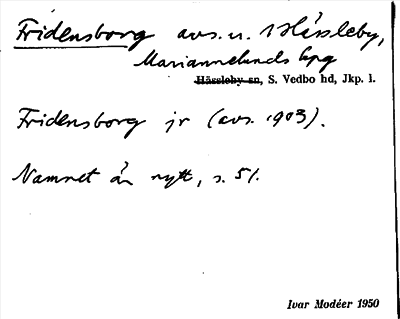 Fridensborg avs. u. Hässleby,
Mariannelunds kpg
Hässleby sn, S. Vedbo hd, Jkp. l.
Fridensborg jr (avs. 1903).
Namnet är nytt, s. 51.
Ivar Modéer 1950